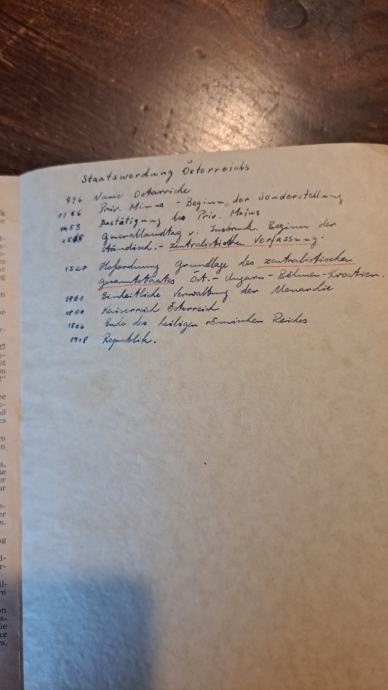 Staatswerdung Österreichs
996 Name Ostarriche
1156 Priv. Minus - Beginn der Sonderstellung
1453 Bestätigung des Priv. Maius
1518 Generallandtag v. Insbruck. Beginn der
Ständisch.- zentralistischen Verfassung.
1527 Hofordnung Grundlage des zentralistischen
gesamtstaates Öst. - Ungarn - Böhmen - Kroatien.
Einheitliche Verwaltung der Monarchie
1804 Kaiserreich Österreich
1806 Ende des heiligen römischen Reiches
1918 Republik.